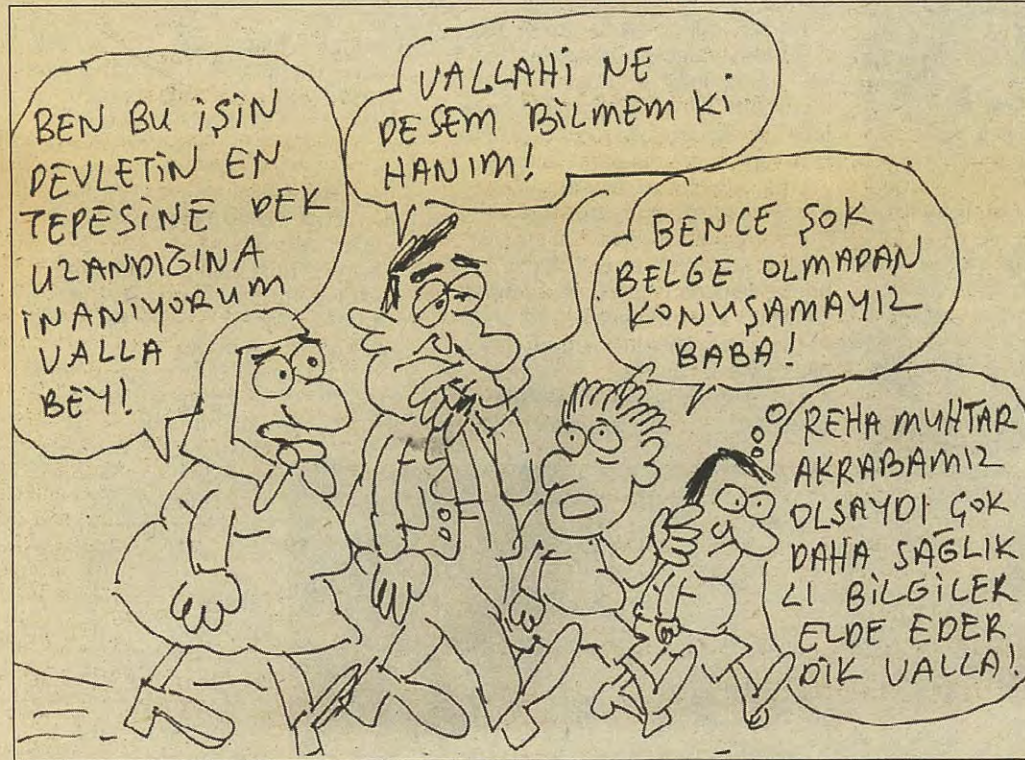 BEN BU İŞİN
DEVLETİN EN
TEPESİNE DEK
UZANDIĞINA
İNANIYORUM
VALLA
BEY!
VALLAHİ NE
DESEM BİLMEM Kİ
HANIM!
BENCE ŞOK
BELGE OLMADAN
KONUŞAMAYIZ
BABA!
REHA MUHTAR
AKRABAMIZ
OLSAYDI ÇOK
DAHA SAĞLIK
LI BİLGİLER
ELDE EDER
DİK VALLA!